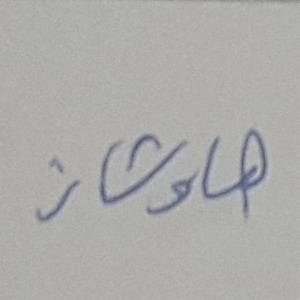 هاوشاز